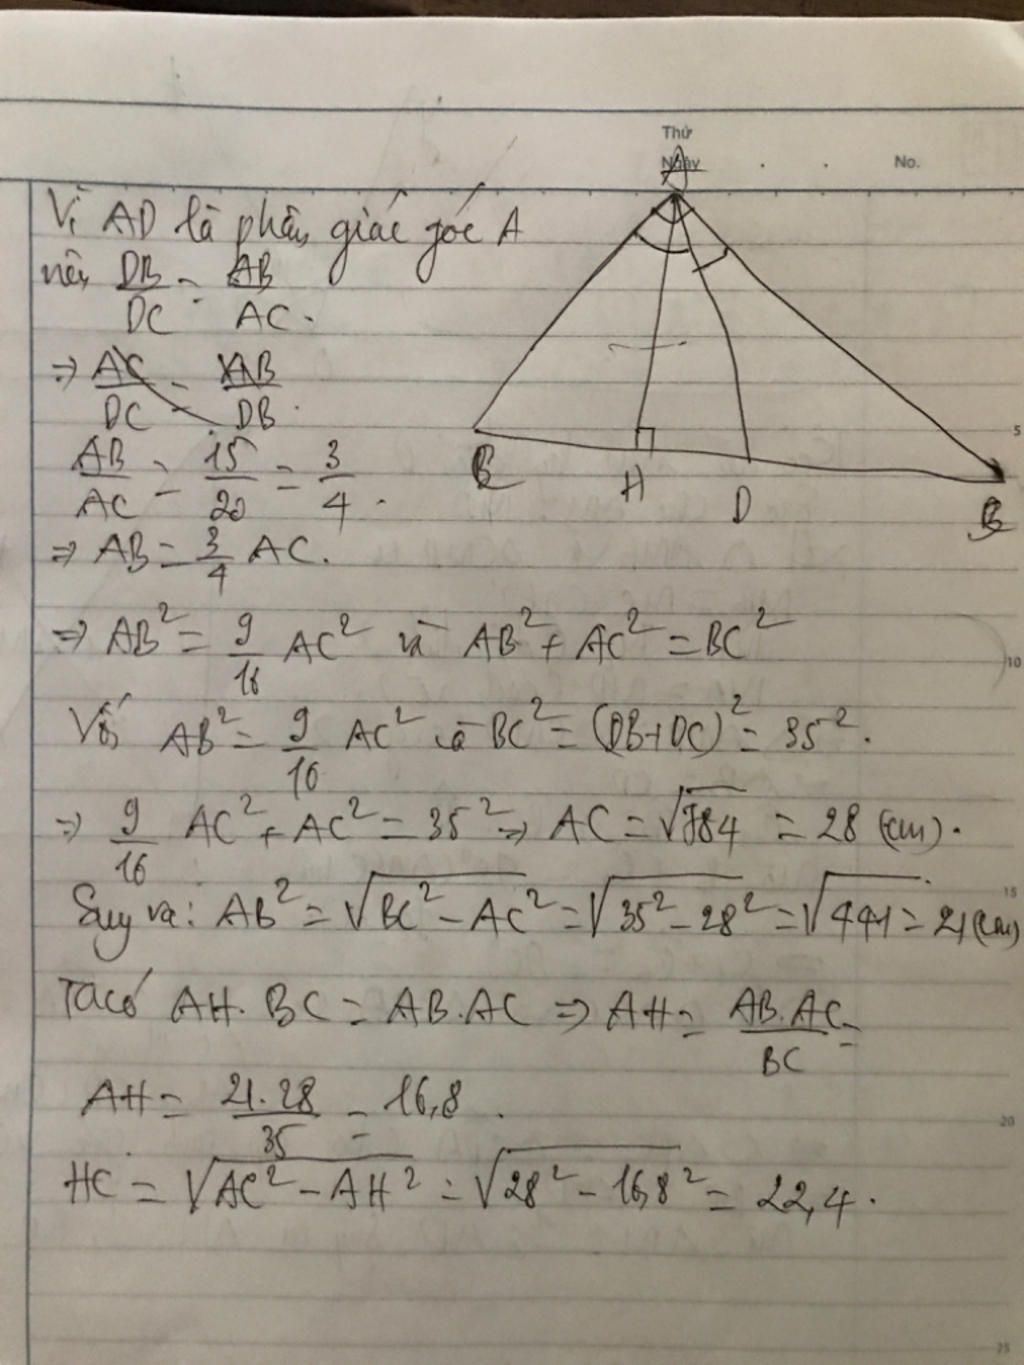 Thứ
Ngày
No.
A
Vì AD là phân giác góc A
nên DB/DC = AB/AC.
⇒ AC/DC = AB/DB.
AB/AC = 15/20 = 3/4.
⇒ AB = 3/4 AC.
B H D B
5
⇒ AB² = 9/16 AC² và AB² + AC² = BC²
10
Với AB² = 9/16 AC² và BC² = (DB+DC)² = 35².
⇒ 9/16 AC² + AC² = 35² ⇒ AC = √784 = 28 (cm).
15
Suy ra: AB² = √BC² - AC² = √35² - 28² = √441 = 21 (cm)
Ta có AH . BC = AB . AC ⇒ AH = AB . AC/BC =
AH = 21.28/35 = 16,8.
20
HC = √AC² - AH² = √28² - 16,8² = 22,4.
25